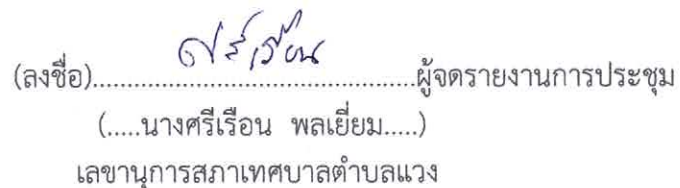 ศรีเรือน
(ลงชื่อ).............................................ผู้จดรายงานการประชุม
(.....นางศรีเรือน พลเยี่ยม.....)
เลขานุการสภาเทศบาลตำบลแวง